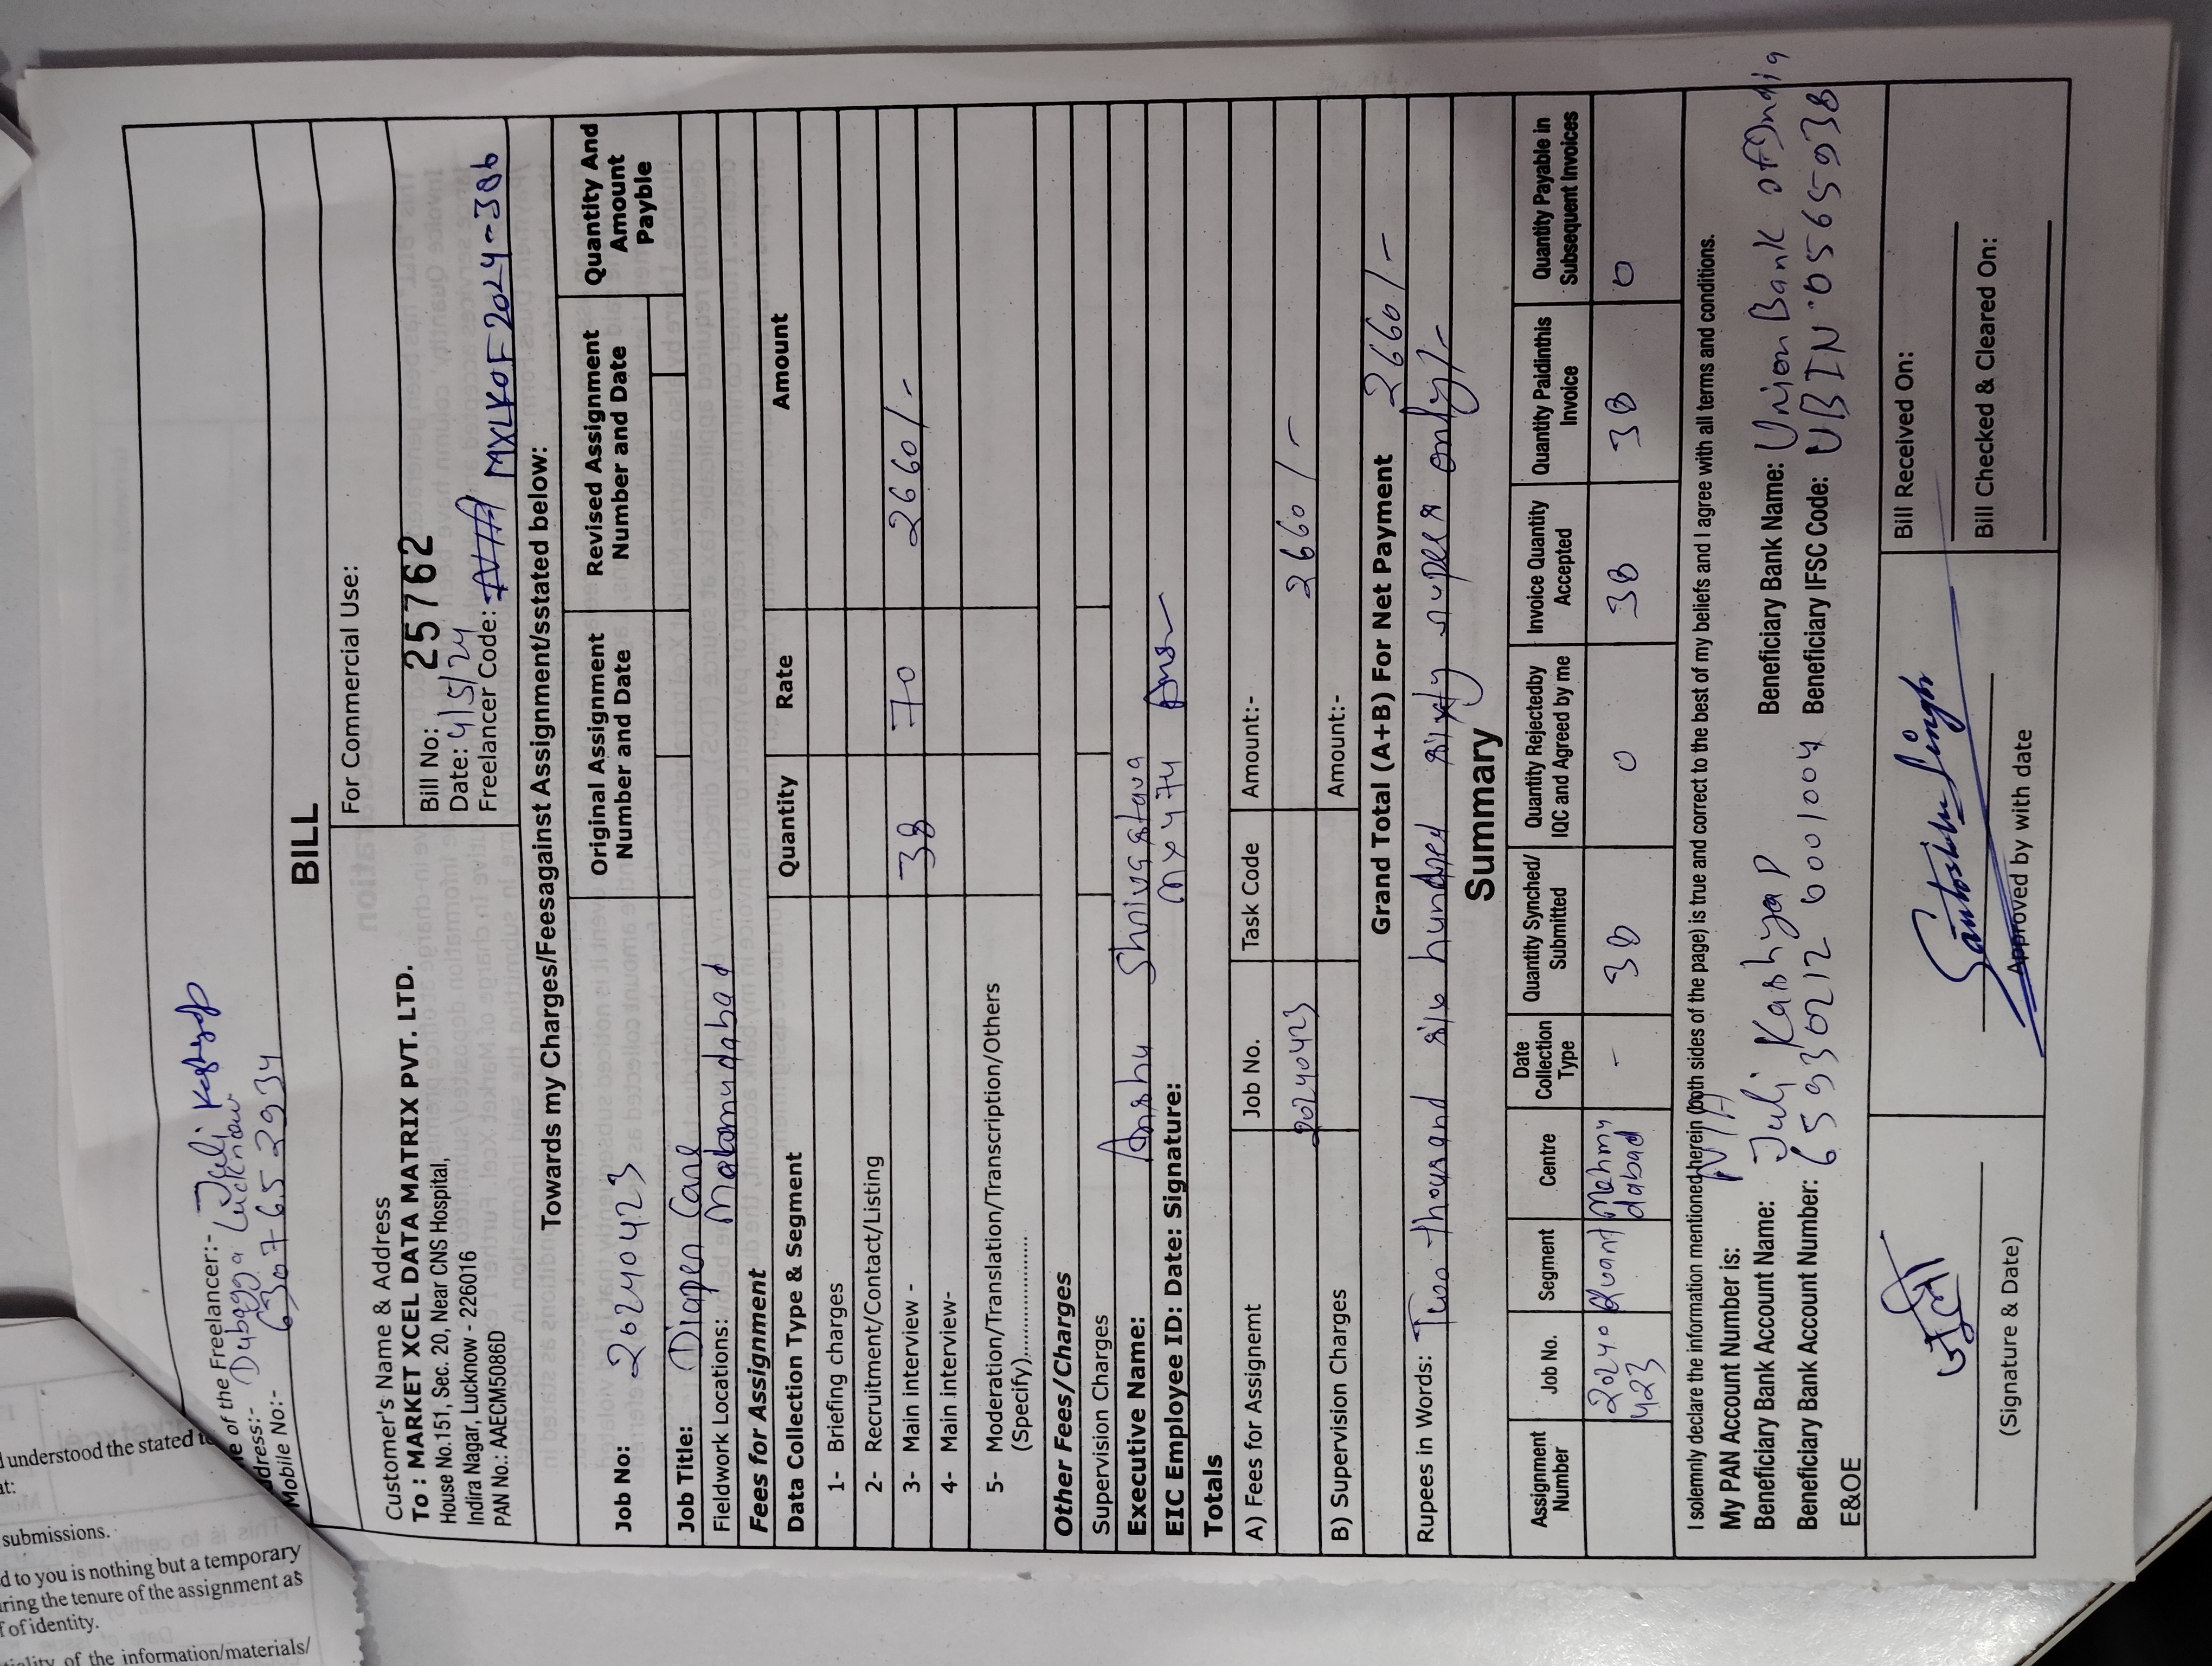 understood the stated to
at:
submissions.
d to you is nothing but a temporary
ring the tenure of the assignment as
f of identity.
tiality of the information/materials/
me of the Freelancer:- Juli Kashyap
ddress:- Dubagga Lucknow
Mobile No:- 6307652934
BILL
Customer's Name & Address
To : MARKET XCEL DATA MATRIX PVT. LTD.
House No.151, Sec. 20, Near CNS Hospital,
Indira Nagar, Lucknow - 226016
PAN No.: AAECM5086D
For Commercial Use:
Bill No: 25762
Date: 4/5/24
Freelancer Code: MXLKOF2024-386
Towards my Charges/Feesagainst Assignment/sstated below:
Job No: 20240423
Original Assignment Number and Date
Revised Assignment Number and Date
Quantity And Amount Payble
Job Title: Diaper Care
Fieldwork Locations: Mahamudabad
Fees for Assignment
Data Collection Type & Segment Quantity Rate Amount
1- Briefing charges
2- Recruitment/Contact/Listing
3- Main interview - 38 70 2660/-
4- Main interview-
5- Moderation/Translation/Transcription/Others
(Specify)....................
Other Fees/Charges
Supervision Charges
Executive Name: Anshu Shrivastava
EIC Employee ID: Date: Signature: MX474
Totals
A) Fees for Assignemt Job No. Task Code Amount:-
20240423 2660/-
B) Supervision Charges Amount:-
Grand Total (A+B) For Net Payment 2660/-
Rupees in Words: Two thousand six hundred sixty rupees only/-
Summary
Assignment Number
Job No.
Segment
Centre
Date Collection Type
Quantity Synched/ Submitted
Quantity Rejectedby IQC and Agreed by me
Invoice Quantity Accepted
Quantity Paidinthis Invoice
Quantity Payable in Subsequent Invoices
20240 423 Quant Mahmu dabad - 38 0 38 38 0
I solemnly declare the information mentioned herein (both sides of the page) is true and correct to the best of my beliefs and I agree with all terms and conditions.
My PAN Account Number is: N/A
Beneficiary Bank Account Name: Juli Kashyap Beneficiary Bank Name: Union Bank of India
Beneficiary Bank Account Number: 659302126001004 Beneficiary IFSC Code: UBIN0565938
E&OE
(Signature & Date)
Santosh Singh
Approved by with date
Bill Received On:
Bill Checked & Cleared On: